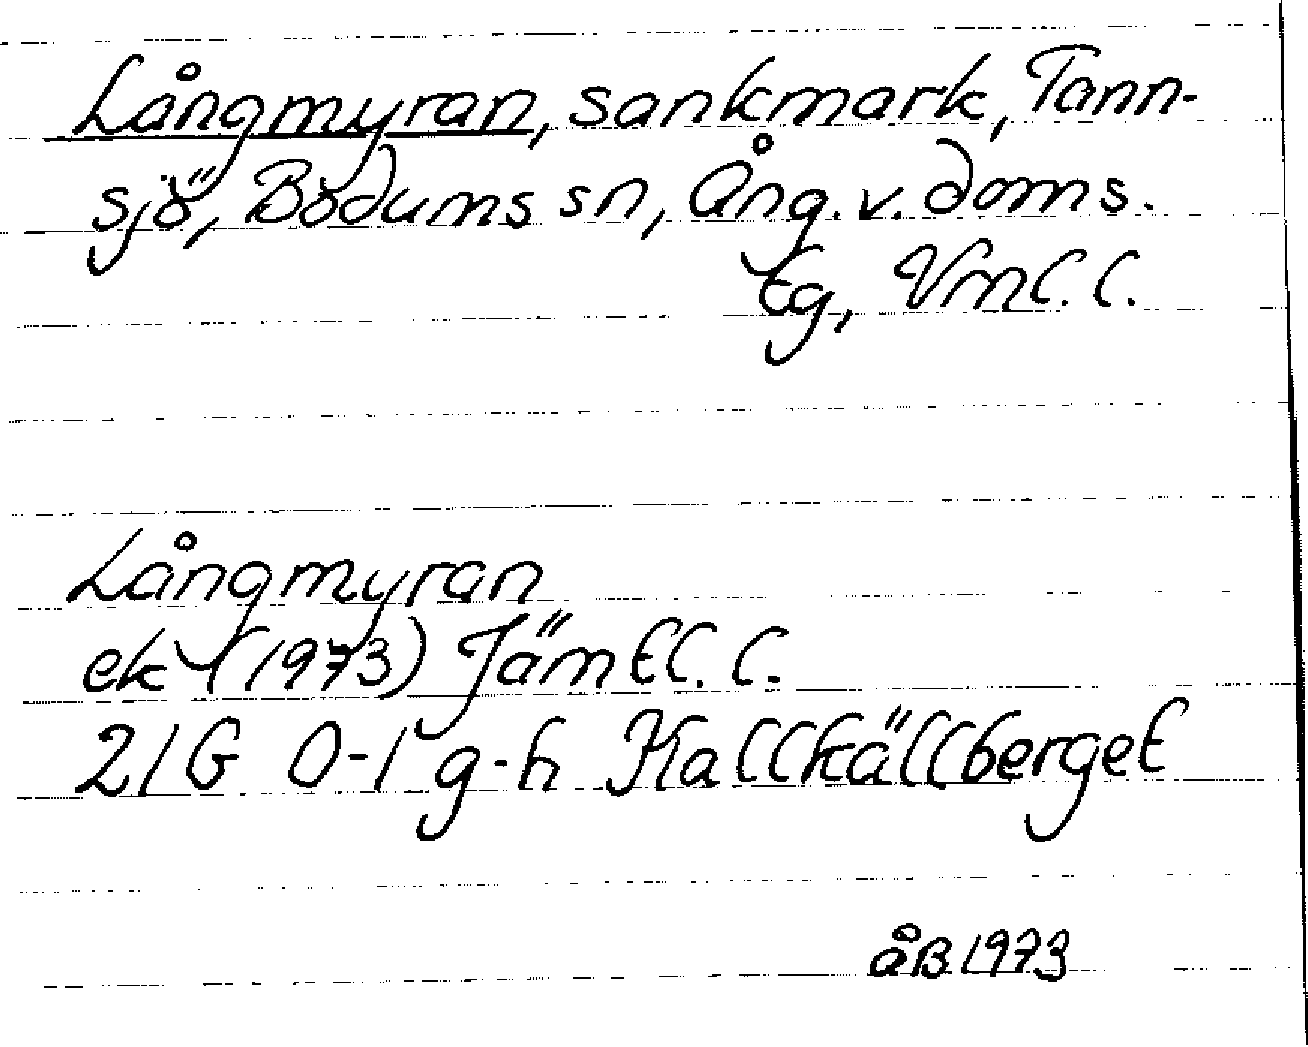 Långmyran, sankmark, Tann-
sjö, Bodums sn, Ång. v. doms.
tg, Vrnl. l.
Långmyran
ek (1973) Jämtl. l.
21G 0-1 g-h Kallkällberget
åB 1973